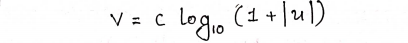 v = c log₁₀ (1 + |u|)